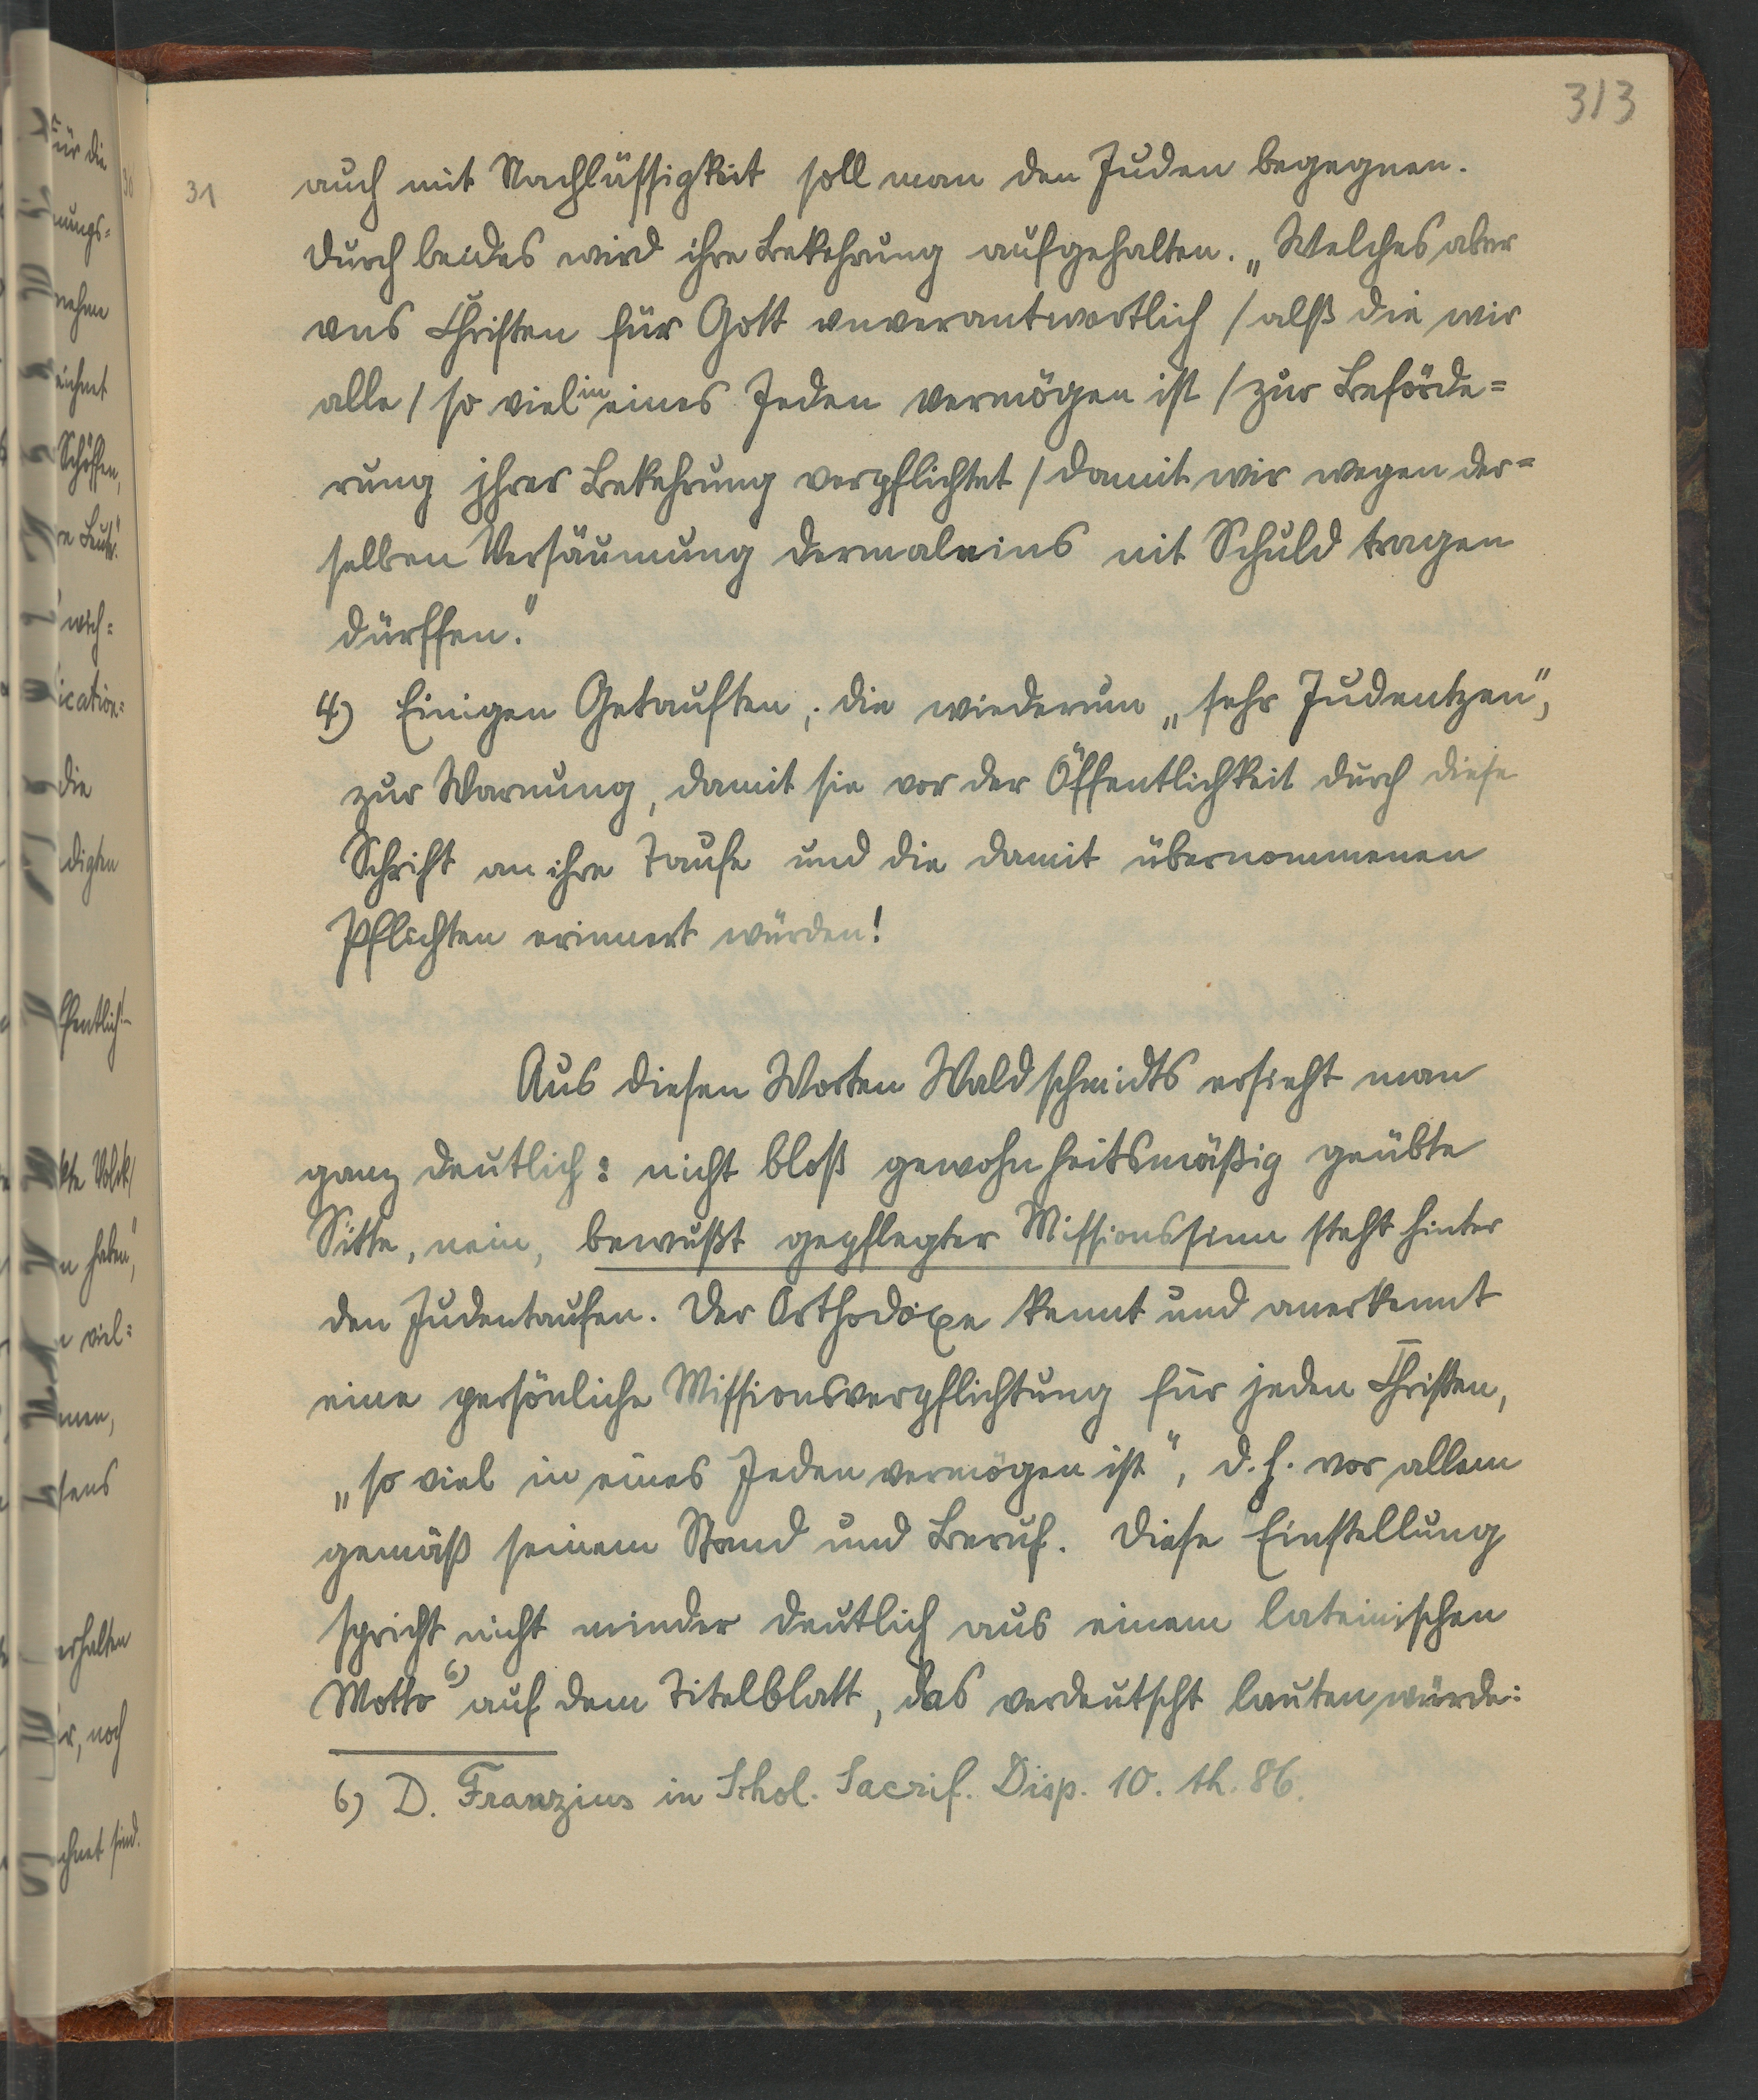 313
31
auch mit Nachlässigkeit soll man den Juden begegnen.
Durch beides wird ihre Bekehrung aufgehalten. „Welches aber
vns Christen für Gott vnverantwortlich / alß die wir
alle / so viel in eines Jeden vermögen ist / zur Beförde=
rung jhrer Bekehrung verpflichtet / damit wir wegen der=
selben Versäumung dermaleins nit Schuld tragen
dürffen.“
4) Einigen Getauften, die wiederum „sehr Judentzen“,
zur Warnung, damit sie vor der Öffentlichkeit durch diese
Schrift an ihre Taufe und die damit übernommenen
Pflichten erinnert würden!
Aus diesen Worten Waldschmidts ersieht man
ganz deutlich: nicht bloß gewohnheitsmäßig geübte
Sitte, nein, bewußt gepflegter Missionssinn steht hinter
den Judentaufen. Der Orthodoxe kennt und anerkennt
eine persönliche Missionsverpflichtung für jeden Christen,
„so viel in eines Jeden vermögen ist“, d. h. vor allem
gemäß seinem Stand und Beruf. Diese Einstellung
spricht nicht minder deutlich aus einem lateinischen
Motto 6) auf dem Titelblatt, das verdeutscht lauten würde:
6) D. Franzius in Schol. Sacrif. Disp. 10. th. 86.